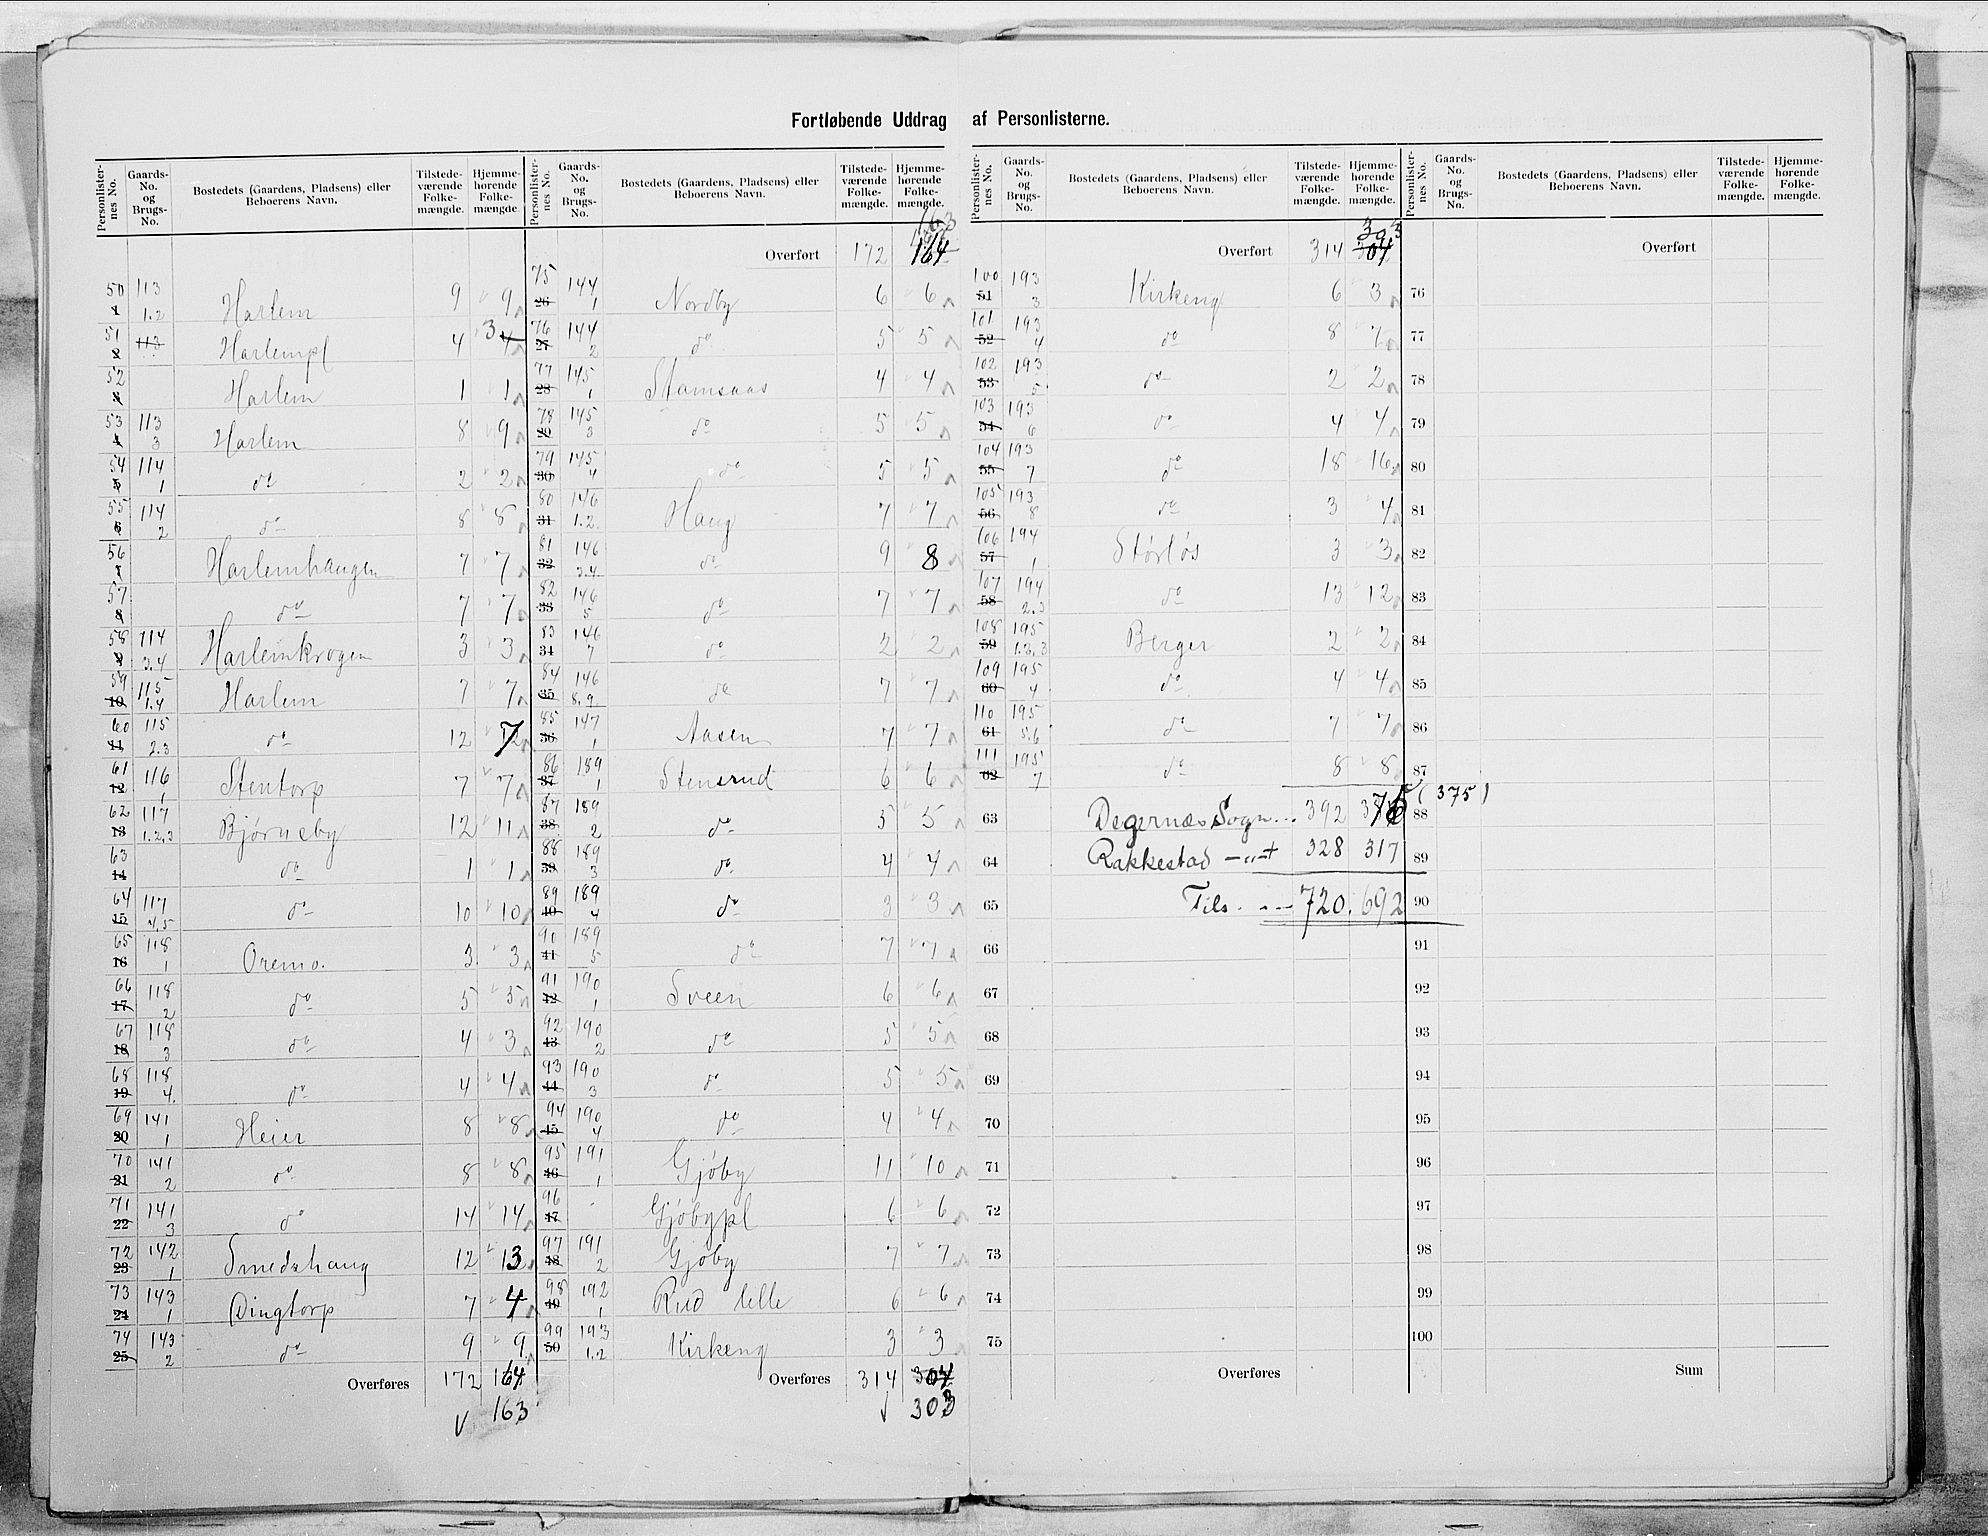 Fortløbende Uddrag af Personlisterne.
Personlister-nes No. Gaards-No. og Brugs-No. Bostedets (Gaardens, Pladsens) eller Beboerens Navn. Tilstede-værende Folke-mængde. Hjemme-hørende Folke-mængde.
50 1 113 1.2 Harlem 9 9
51 2 113 Harlempl 4 3 4
52 3 Harlem 1 1
53 4 113 3 Harlem 8 9
54 5 114 1 do 2 2
55 6 114 2 do 8 8
56 7 Harlemhaugen 7 7
57 8 do 7 7
58 9 114 3.4 Harlemkrogen 3 3
59 10 115 1.4 Harlem 7 7
60 11 115 2.3 do 12 7
61 12 116 1 Stentorp 7 7
62 13 117 1.2,3 Bjørneby 12 11
63 14 do 1 1
64 15 117 4,5 do 10 10
65 16 118 1 Oremo. 3 3
66 17 118 2 do 5 5
67 18 118 3 do 4 3
68 19 118 4. do 4 4
69 20 141 1 Heier 8 8
70 21 141 2 do 8 8
71 22 141 3 do 14 14
72 23 142 1 Smedshaug 12 13
73 24 143 1 Dingtorp 7 4
74 25 143 2 do 9 9
Overføres 172 164
163
Personlister-nes No. Gaards-No. og Brugs-No. Bostedets (Gaardens, Pladsens) eller Beboerens Navn. Tilstede-værende Folke-mængde. Hjemme-hørende Folke-mængde.
163
Overført 172 164
75 26 144 1 Nordby 6 6
76 27 144 2 do 5 5
77 28 145 1 Stamsaas 4 4
78 29 145 3 do 5 5
79 30 145 4 do 5 5
80 31 146 1.2. Haug 7 7
81 32 146 3.4. do 9 8
82 33 146 5 do 7 7
83 34 146 7 do 2 2
84 35 146 8,9 do 7 7
85 36 147 1 Aasen 7 7
86 37 189 1 Stensrud 6 6
87 38 189 2 do 5 5
88 39 189 3 do. 4 4
89 40 189 4 do 3 3
90 41 189 5 do 7 7
91 42 190 1 Sveen 6 6
92 43 190 2 do 5 5
93 44 190 3 do 5 5
94 45 190 4 do 4 4
95 46 191 1 Gjøby 11 10
96 47 Gjøbypl 6 6
97 48 191 2 Gjøby 7 7
98 49 192 1 Rud lille 6 6
99 50 193 1.2 Kirkeng 3 3
Overføres 314 304
303
Personlister-nes No. Gaards-No. og Brugs-No. Bostedets (Gaardens, Pladsens) eller Beboerens Navn. Tilstede-værende Folke-mængde. Hjemme-hørende Folke-mængde.
303
Overført 314 304
100 51 193 3 Kirkeng 6 3
101 52 193 4 do 8 7
102 53 193 5 do 2 2
103 54 193 6 do 4 4
104 55 193 7 do 18 16
105 56 193 8 do 3 4
106 57 194 1 Størløs 3 3
107 58 194 2.3 do 13 12
108 59 195 1.2,3 Berger 2 2
109 60 195 4 do 4 4
110 61 195 5.6 do 7 7
111 62 195 7 do 8 8
63 Degernæs Sogn... 392 375 (375)
64 Rakkestad —"— 328 317
65 Tils. - - - 720. 692
66
67
68
69
70
71
72
73
74
75
Overføres
Personlister-nes No. Gaards-No. og Brugs-No. Bostedets (Gaardens, Pladsens) eller Beboerens Navn. Tilstede-værende Folke-mængde. Hjemme-hørende Folke-mængde.
Overført
76
77
78
79
80
81
82
83
84
85
86
87
88
89
90
91
92
93
94
95
96
97
98
99
100
Sum